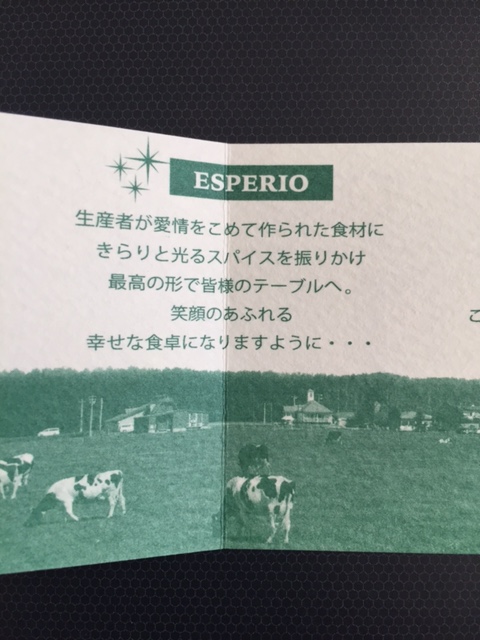 ESPERIO
生産者が愛情をこめて作られた食材に
きらりと光るスパイスを振りかけ
最高の形で皆様のテーブルへ。
笑顔のあふれる
幸せな食卓になりますように・・・
こ